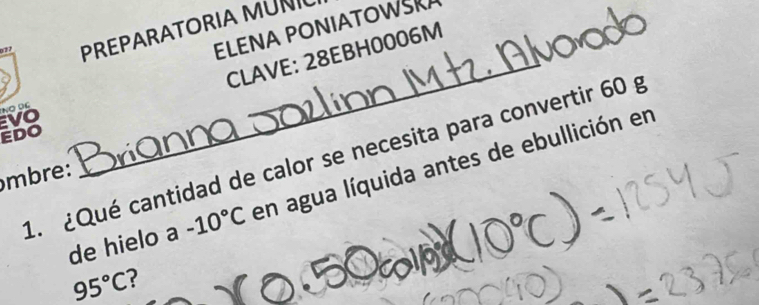 PREPARATORIA MUNICI
ELENA PONIATOWSKA
CLAVE: 28EBH0006M
EVO
EDO
ombre: Brianna Joslinn Mtz. Alvorado
1. ¿Qué cantidad de calor se necesita para convertir 60 g
de hielo a -10°C en agua líquida antes de ebullición en
95°C?
(0.50cal/g°c)(10°C) = 1254 J
) = 2376